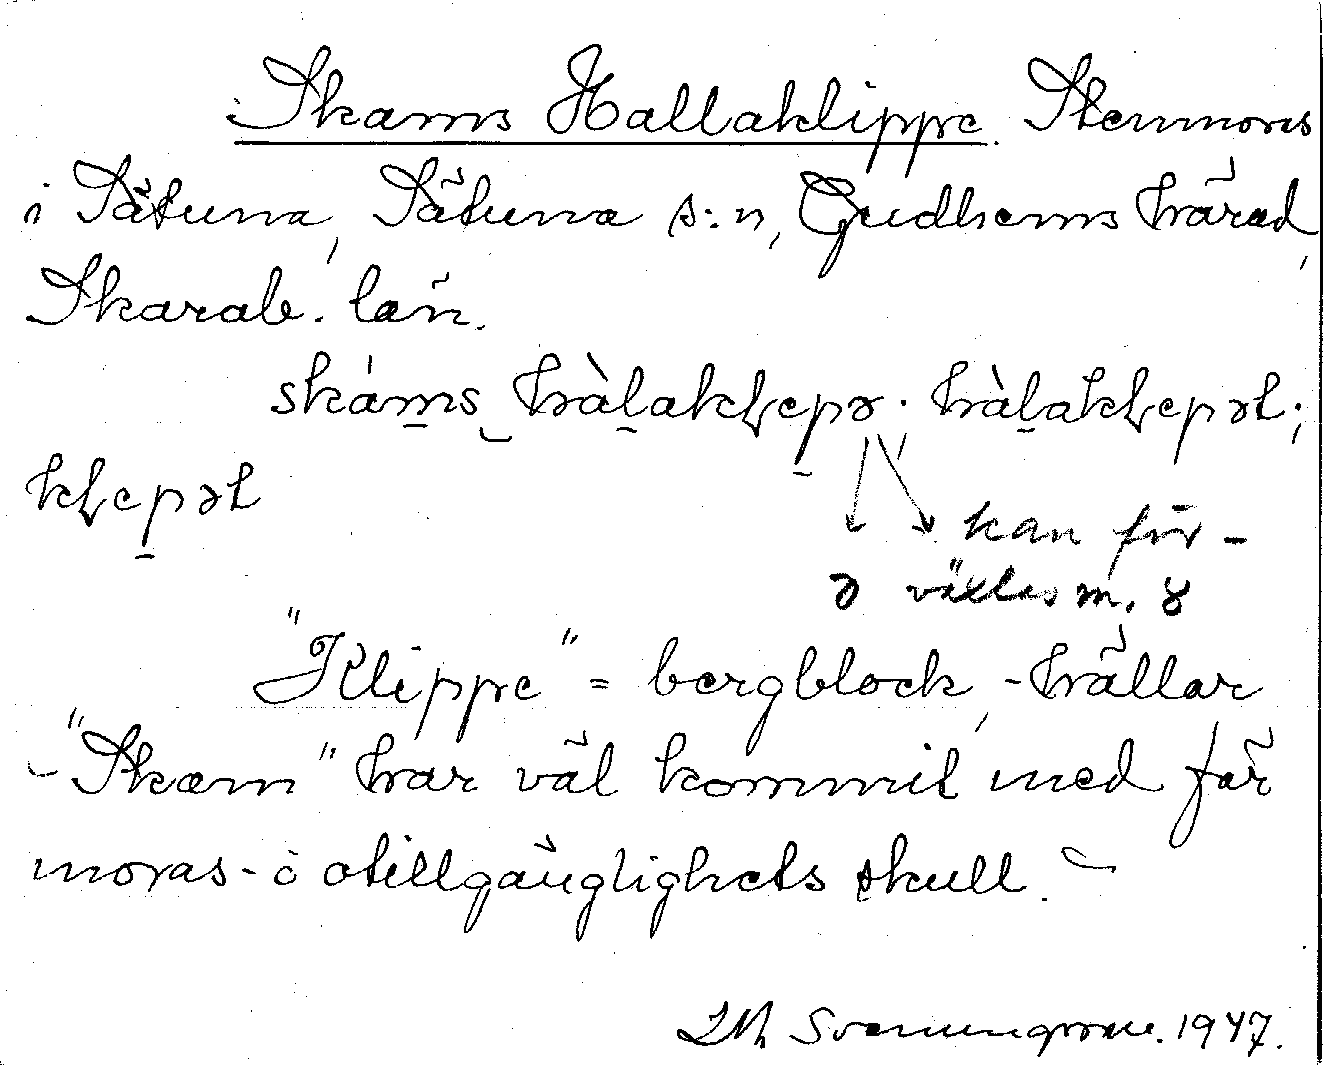 Skams Hallaklippe. Stenmoras
i Sätuna, Sätuna s:n, Gudhems härad,
Skarab. län.
skáms hàlaklepə; hàlaklepət;
klepət
kan för-
ə växlas m. ɤ
"Klippe" = bergblock, - hällar
- "Skam" har väl kommit med för
moras- o otillgänglighets skull. -
Svenungsson. 1947.